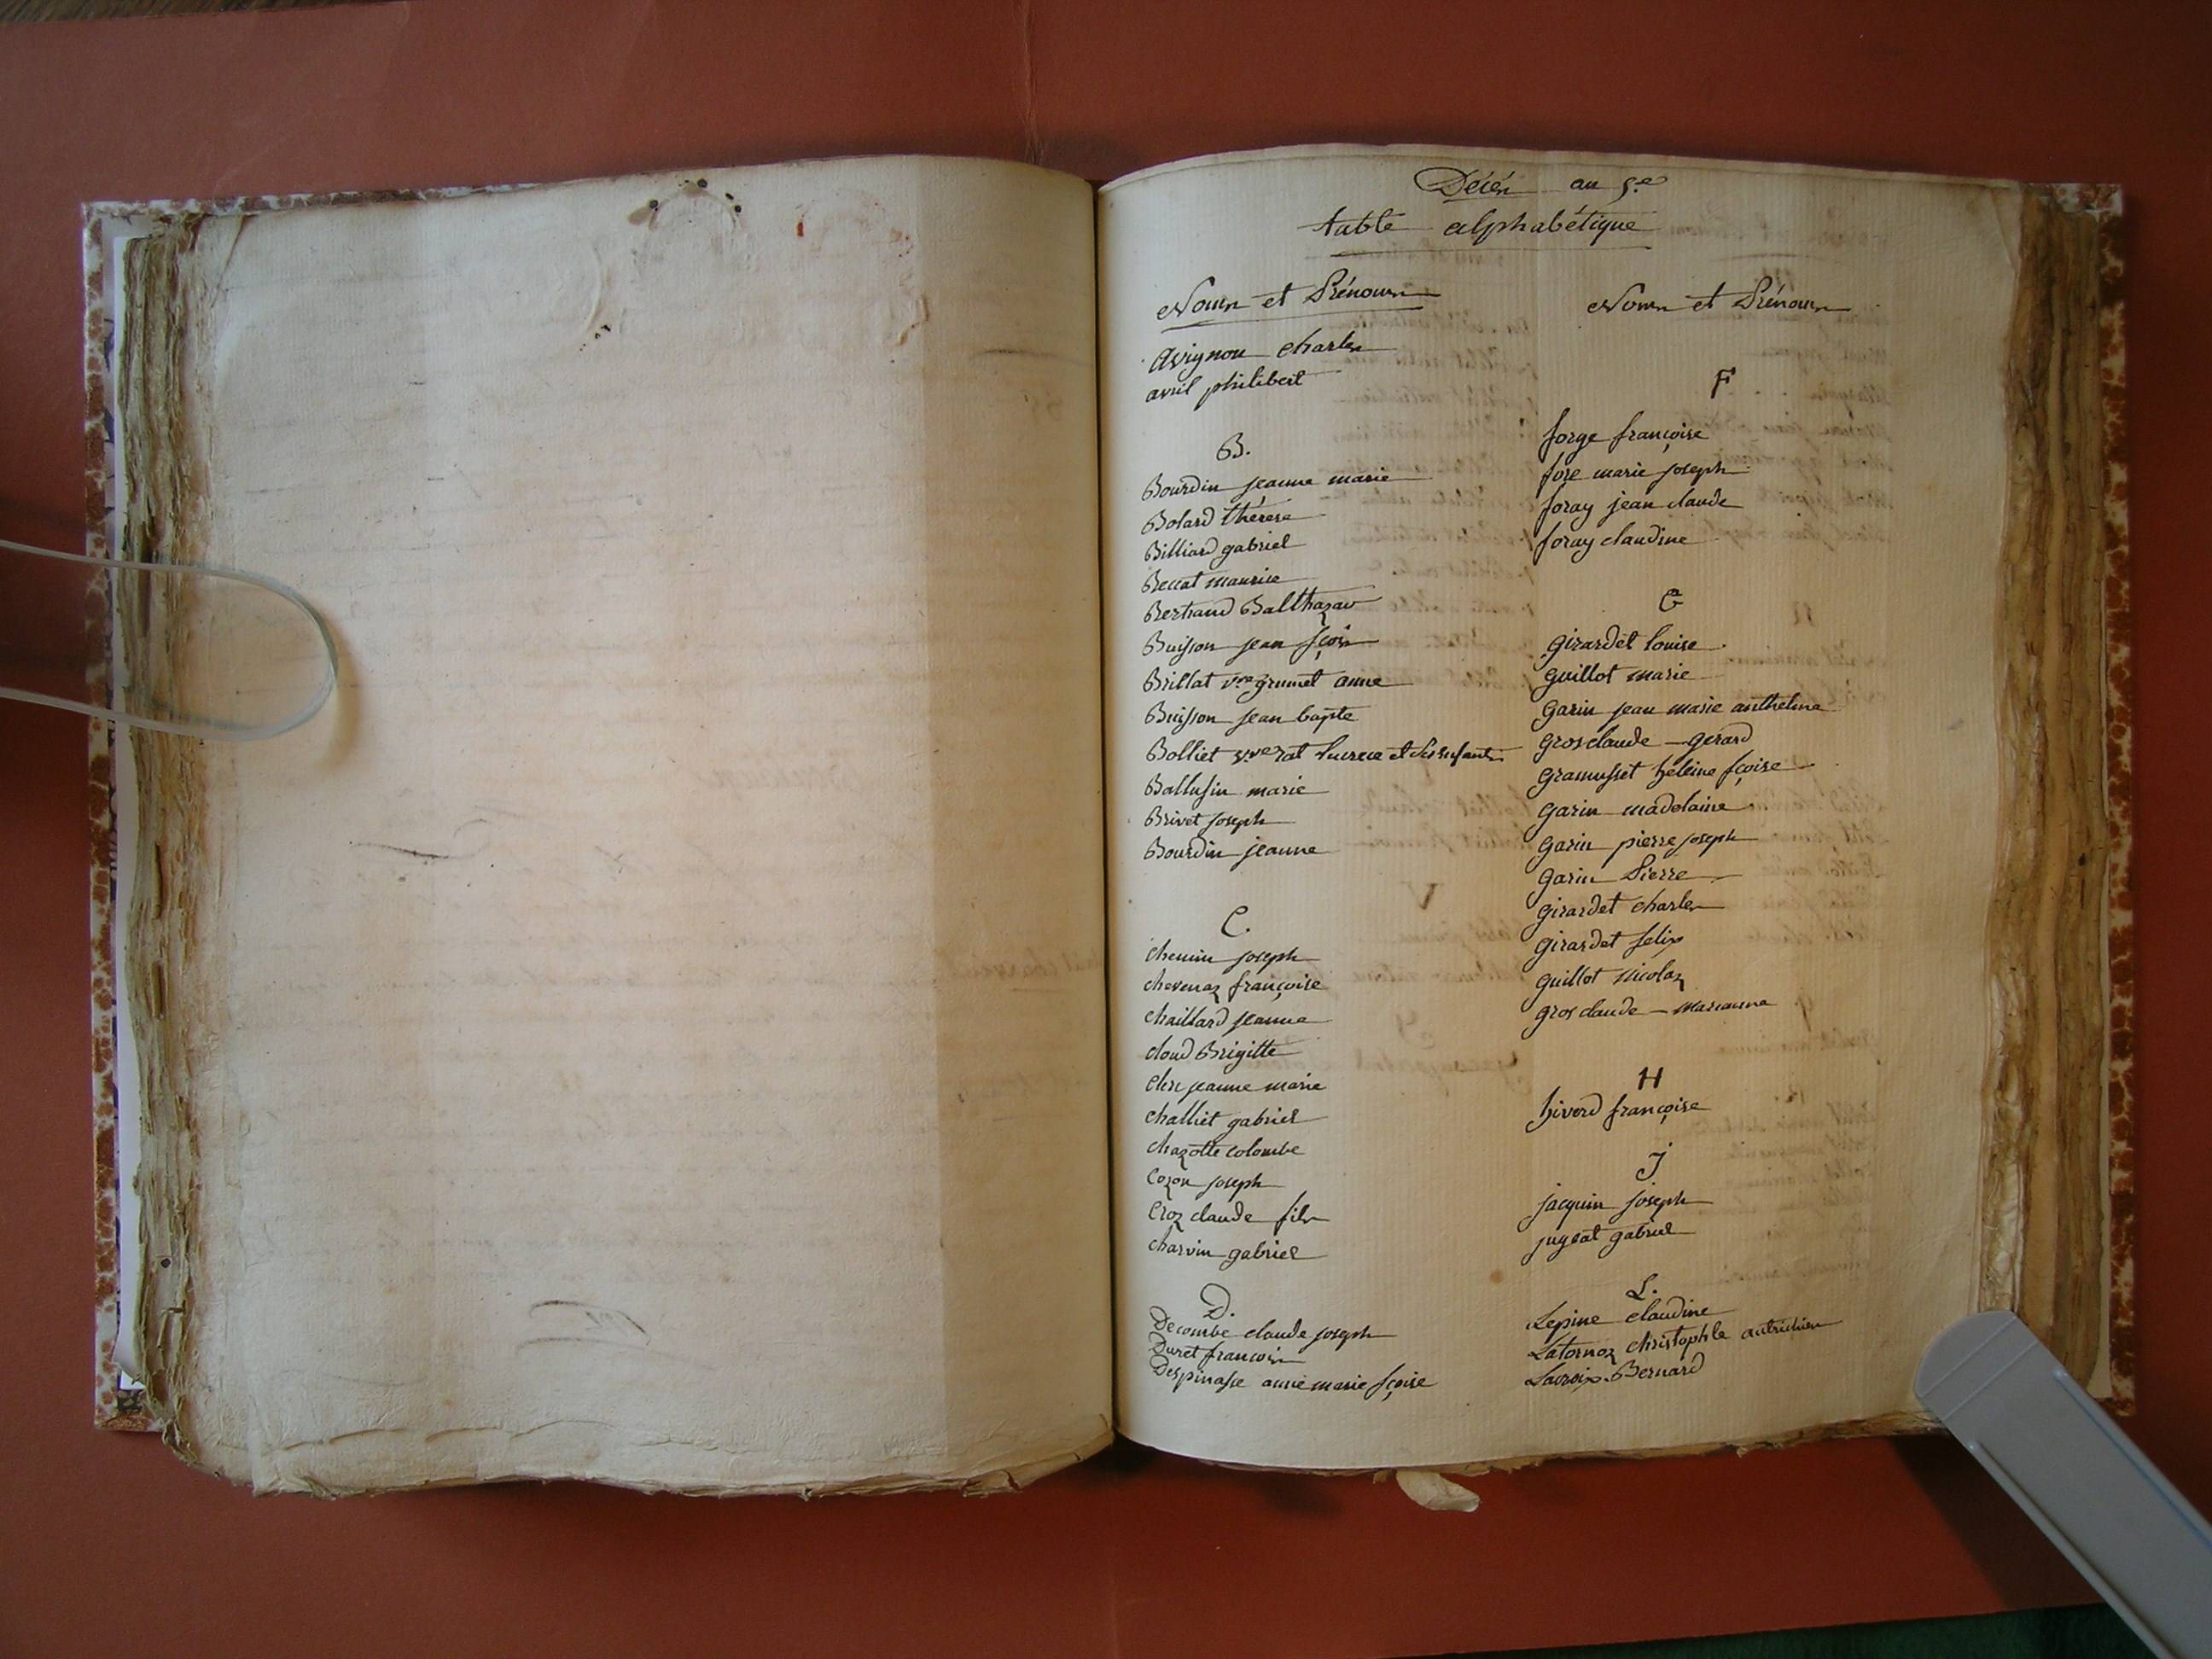 Décès an 5.e
table alphabétique
Noms et Prénoms
avignon charles
avril philibert
B.
Bourdin jeanne marie
Bolard thérese
Billiard gabriel
Beccat maurice
Bertrand Balthazar
Buisson jean fçois
Brillat vve grumet anne
Buisson jean bapte
Bolliet vve rat lucrece et ses enfants
Ballufin marie
Brivet joseph
Bourdin jeanne
C.
chemin joseph
chevenaz françoise
chaillard jeanne
cloud Brigitte
jeanne marie
challiet gabriel
chazotte colombe
Cozon joseph
Croz claude fils
charvin gabriel
D.
Decombe claude joseph
Duret francois
Despinasse anne marie fçoise
Noms et Prénoms
F
forge françoise
fore marie joseph
foray jean claude
foray claudine
G
girardet louise
guillot marie
garin jean marie anthelme
grosclaude - gerard
gramusset héleine fçoise
garin madelaine
garin pierre joseph
garin Pierre
girardet charles
girardet felix
guillot nicolaz
gros claude - marianne
H
hiverd françoise
J
jacquin joseph
jugeat gabriel
L.
Lepine claudine
Latornoz christophle autrichien
Lacroix Bernard